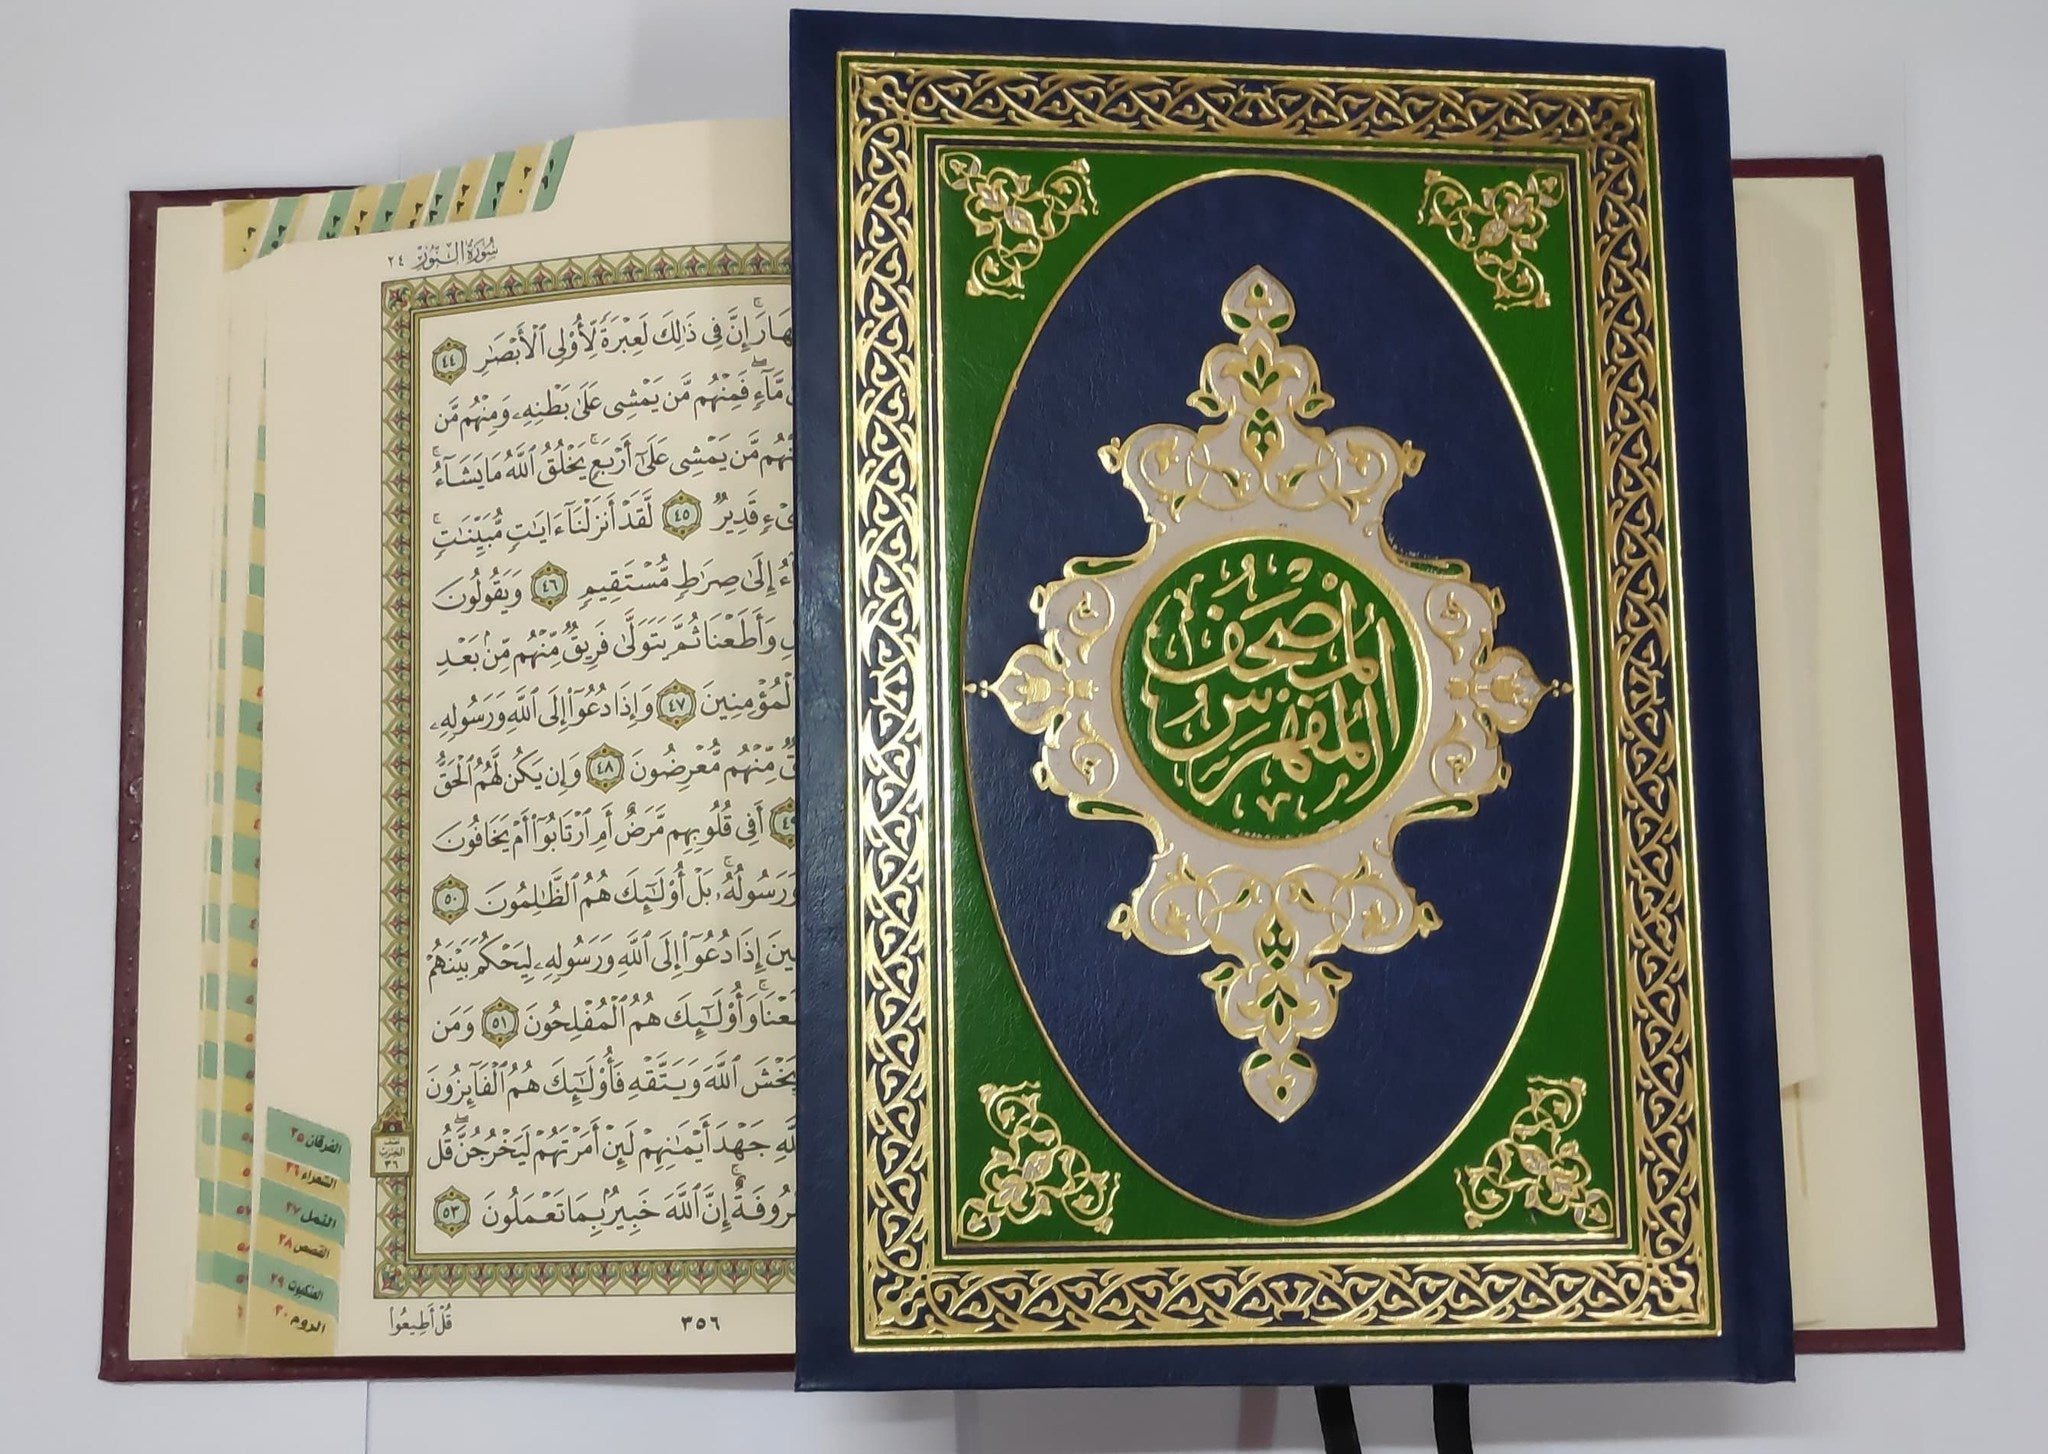 المصحف
المفهرس
سُورَةُ النُّورِ ٢٤
إِنَّ فِي ذَٰلِكَ لَعِبْرَةً لِّأُو۟لِى ٱلْأَبْصَٰرِ ٤٤
مَّآءٍ ۖ فَمِنْهُم مَّن يَمْشِى عَلَىٰ بَطْنِهِۦ وَمِنْهُم مَّن
مَّن يَمْشِى عَلَىٰٓ أَرْبَعٍ ۚ يَخْلُقُ ٱللَّهُ مَا يَشَآءُ ۚ
قَدِيرٌ ٤٥ لَّقَدْ أَنزَلْنَآ ءَايَٰتٍ مُّبَيِّنَٰتٍ ۚ
إِلَىٰ صِرَٰطٍ مُّسْتَقِيمٍ ٤٦ وَيَقُولُونَ
وَأَطَعْنَا ثُمَّ يَتَوَلَّىٰ فَرِيقٌ مِّنْهُم مِّنۢ بَعْدِ
لْمُؤْمِنِينَ ٤٧ وَإِذَا دُعُوٓا۟ إِلَى ٱللَّهِ وَرَسُولِهِۦ
مِّنْهُم مُّعْرِضُونَ ٤٨ وَإِن يَكُن لَّهُمُ ٱلْحَقُّ
٤٩ أَفِى قُلُوبِهِم مَّرَضٌ أَمِ ٱرْتَابُوٓا۟ أَمْ يَخَافُونَ
وَرَسُولُهُۥ ۚ بَلْ أُو۟لَٰٓئِكَ هُمُ ٱلظَّٰلِمُونَ ٥٠
إِذَا دُعُوٓا۟ إِلَى ٱللَّهِ وَرَسُولِهِۦ لِيَحْكُمَ بَيْنَهُمْ
وَأُو۟لَٰٓئِكَ هُمُ ٱلْمُفْلِحُونَ ٥١ وَمَن
يَخْشَ ٱللَّهَ وَيَتَّقْهِ فَأُو۟لَٰٓئِكَ هُمُ ٱلْفَآئِزُونَ
جَهْدَ أَيْمَٰنِهِمْ لَئِنْ أَمَرْتَهُمْ لَيَخْرُجُنَّ ۖ قُل
إِنَّ ٱللَّهَ خَبِيرٌۢ بِمَا تَعْمَلُونَ ٥٣
نصف
الحزب
٣٦
قُلْ أَطِيعُوا۟
٣٥٦
الفرقان ٢٥
الشعراء ٢٦
النمل ٢٧
القصص ٢٨
العنكبوت ٢٩
الروم ٣٠